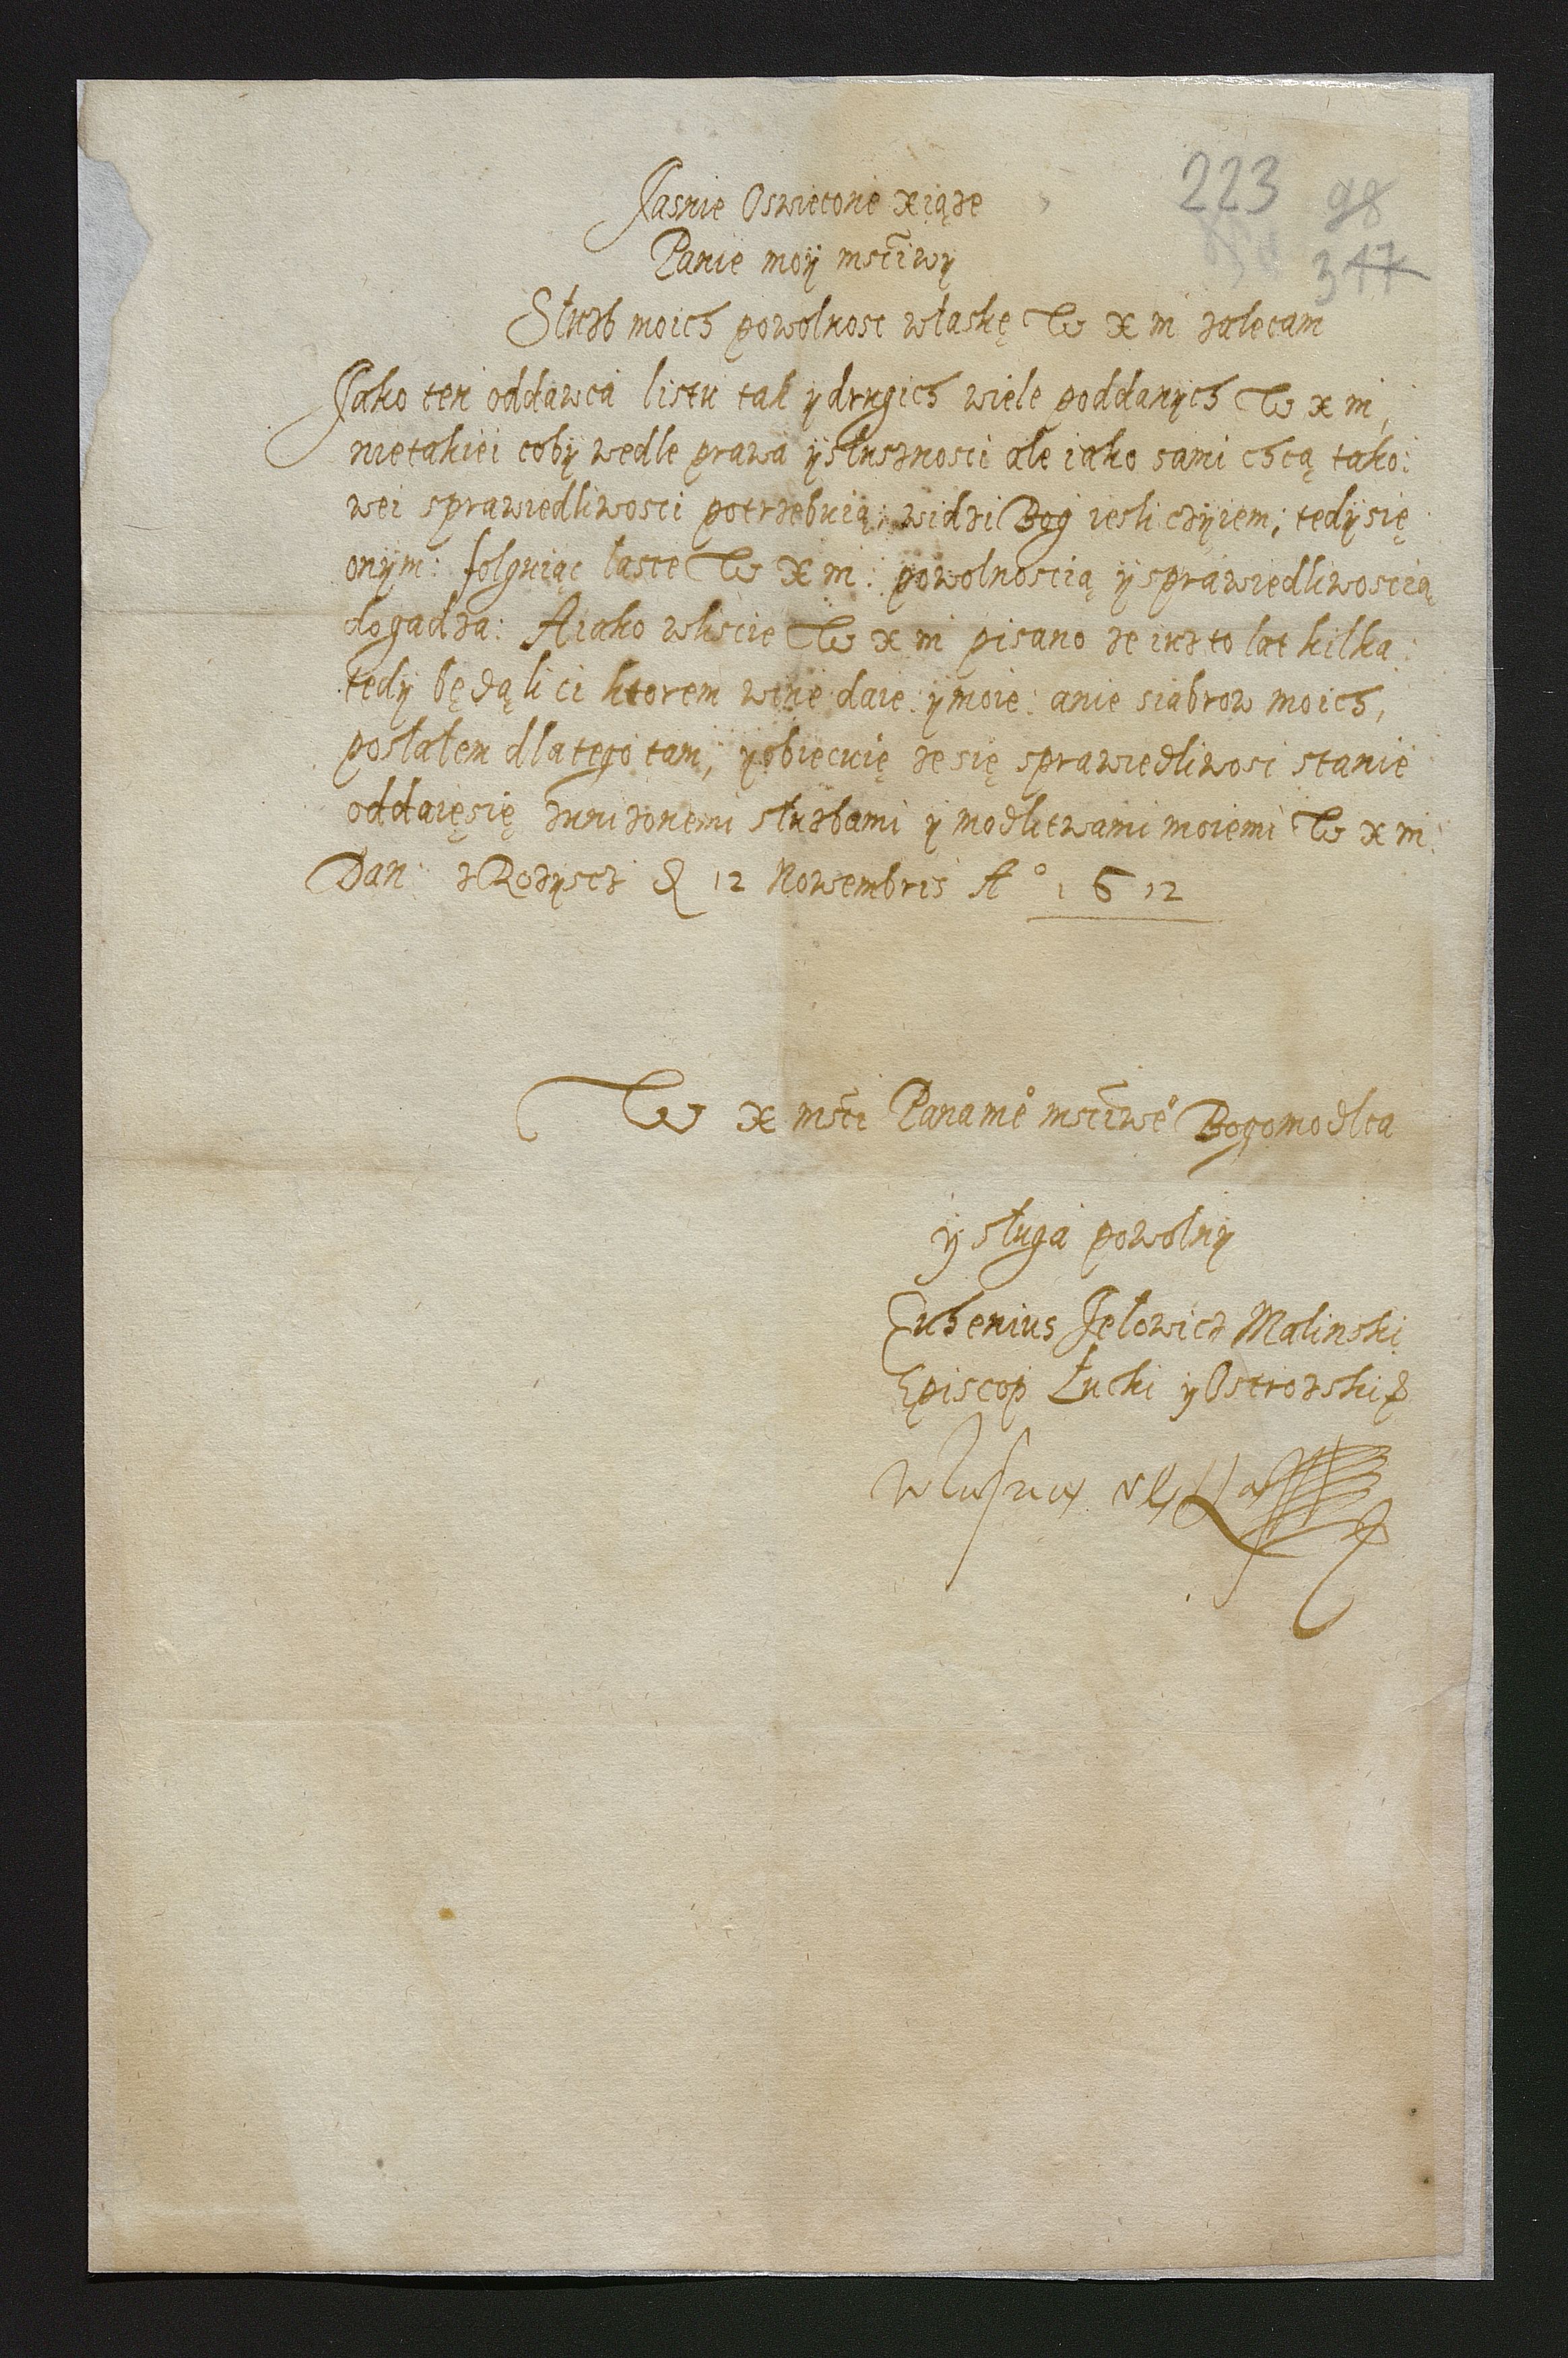 223 98
347
Jasnie Oswiecone xiąze
Panie moÿ msciwy
Służb moich powolnosc właskę W x m zalecam
Jako ten oddawca listu tak ydrugich wiele poddanych W x m,
nietakiei coby wedle prawa ÿsłusznosci ale iako sami chcą tako:
wei sprawiedliwosci potrzebuią: widzi Bog iesli czyiem; tedy się
onÿm: folguiąc łasce W x m: powolnoscią ÿ sprawiedliwoscią
dogadza: A iako wliscie W x m pisano ze iuz to lat kilka:
tedy będąli ci ktorem winę daie: ÿ moie: anie siabrow moich,
posłałem dla tego tam, y obiecuię ze się sprawiedliwosc stanie
oddaięsię zunizonemi służbami y modlitwami moiemi W x m:
Dan z Rozyscz D 12 Nowembris A° 1612
W x msci Paname° msciwe° Bogomodlca
ÿ sługa powolny
Euhenius Jełowicz Malinski
Episcop Łucki y Ostrozski
własną ręką